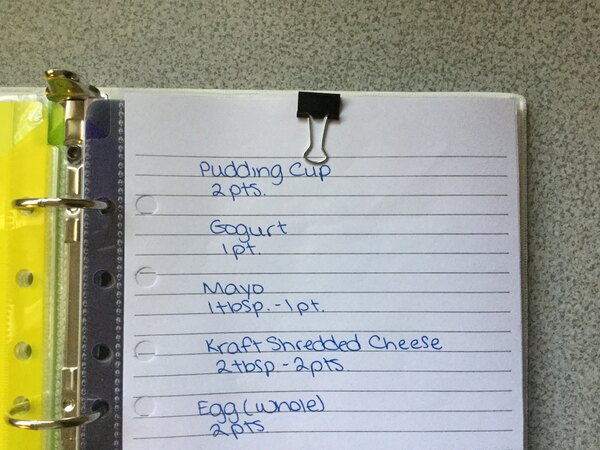 Pudding Cup
2 pts.
Gogurt
1 pt.
Mayo
1 tbsp. - 1 pt.
Kraft Shredded Cheese
2 tbsp - 2 pts
Egg (whole)
2 pts